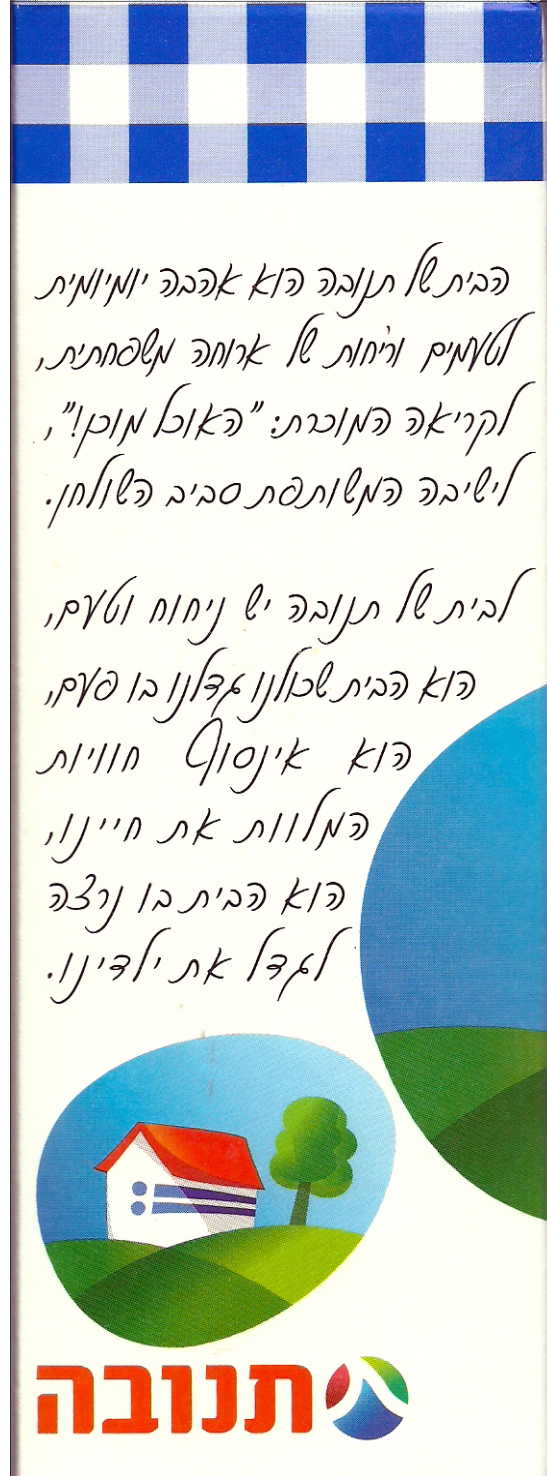 הבית של תנובה הוא אהבה יומיומית
לטעמים וריחות של ארוחה משפחתית,
לקריאה המוכרת: "האוכל מוכן!",
לישיבה המשותפת סביב השולחן.
לבית של תנובה יש ניחוח וטעם,
הוא הבית שכולנו גדלנו בו פעם,
הוא אינסוף חוויות
המלוות את חיינו,
הוא הבית בו נרצה
לגדל את ילדינו.
תנובה